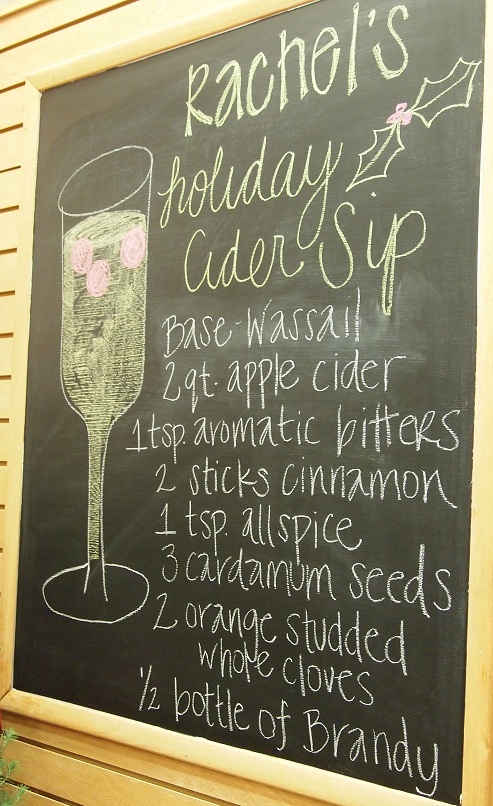 Rachel's
holiday
Cider Sip
Base-Wassail
2 qt. apple cider
1 tsp. aromatic bitters
2 sticks cinnamon
1 tsp. allspice
3 cardamum seeds
2 orange studded
whole cloves
1/2 bottle of Brandy